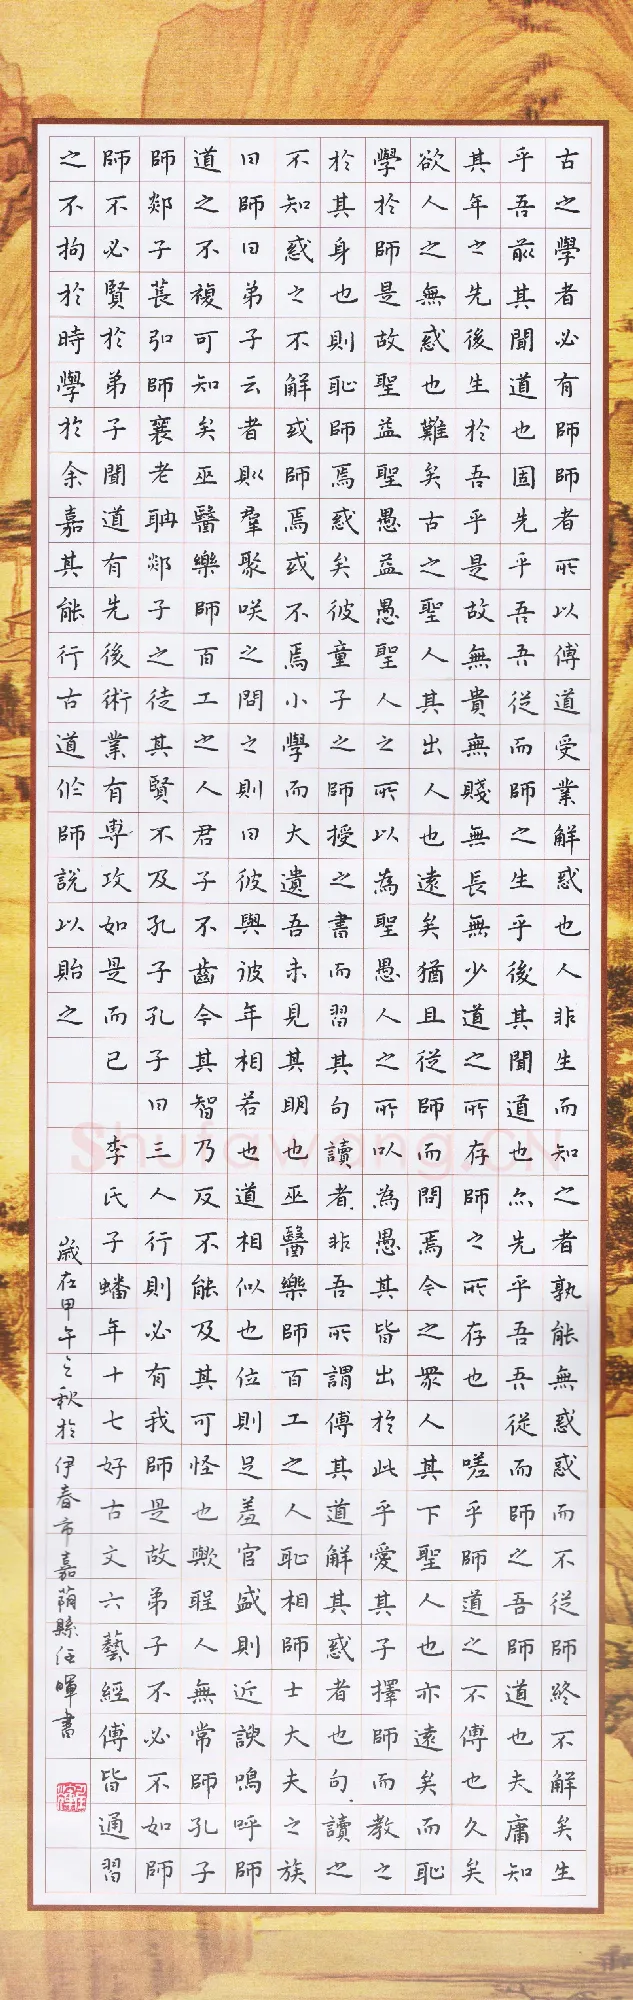 古之學者必有師師者所以傅道受業解惑也人非生而知之者孰能無惑惑而不從師終不解矣生
乎吾前其聞道也固先乎吾吾從而師之生乎後其聞道也亦先乎吾吾從而師之吾師道也夫庸知
其年之先後生於吾乎是故無貴無賤無長無少道之所存師之所存也 嗟乎師道之不傅也久矣
欲人之無惑也難矣古之聖人其出人也遠矣猶且從師而問焉今之眾人其下聖人也亦遠矣而恥
學於師是故聖益聖愚益愚聖人之所以為聖愚人之所以為愚其皆出於此乎愛其子擇師而教之
於其身也則恥師焉惑矣彼童子之師授之書而習其句讀者非吾所謂傅其道解其惑者也句讀之
不知惑之不解或師焉或不焉小學而大遺吾未見其明也巫醫樂師百工之人恥相師士大夫之族
曰師曰弟子云者則群聚咲之問之則曰彼與彼年相若也道相似也位則足羞官盛則近諛鳴呼師
道之不複可知矣巫醫樂師百工之人君子不齒今其智乃反不能及其可怪也歟聖人無常師孔子
師郯子萇弘師襄老聃郯子之徒其賢不及孔子孔子曰三人行則必有我師是故弟子不必不如師
師不必賢於弟子聞道有先後術業有專攻如是而已 李氏子蟠年十七好古文六藝經傅皆通習
之不拘於時學於余嘉其能行古道作師說以貽之
歲在甲午之秋於伊春市嘉蔭縣任暉書
Shufawang.CN